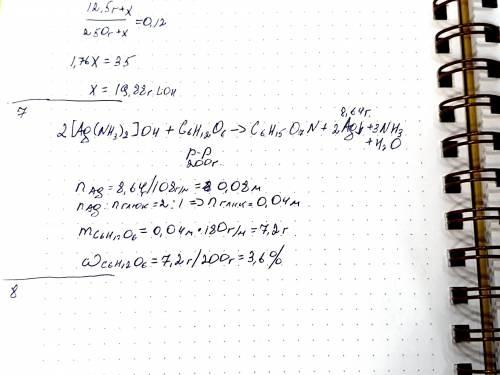 12,5г+x
250г+x =0,12
1,76x = 35
x = 19,88г LiOH
7
8,64г.
2[Ag(NH3)2]OH + C6H12O6 → C6H15O7N + 2Ag↓ + 3NH3
+H2O
р-р
200г
nAg = 8,64/108г/м = 0,08м
nAg : nглюк = 2:1 => nглюк = 0,04м
mC6H12O6 = 0,04м · 180г/м = 7,2г
ωC6H12O6 = 7,2г/200г = 3,6%
8